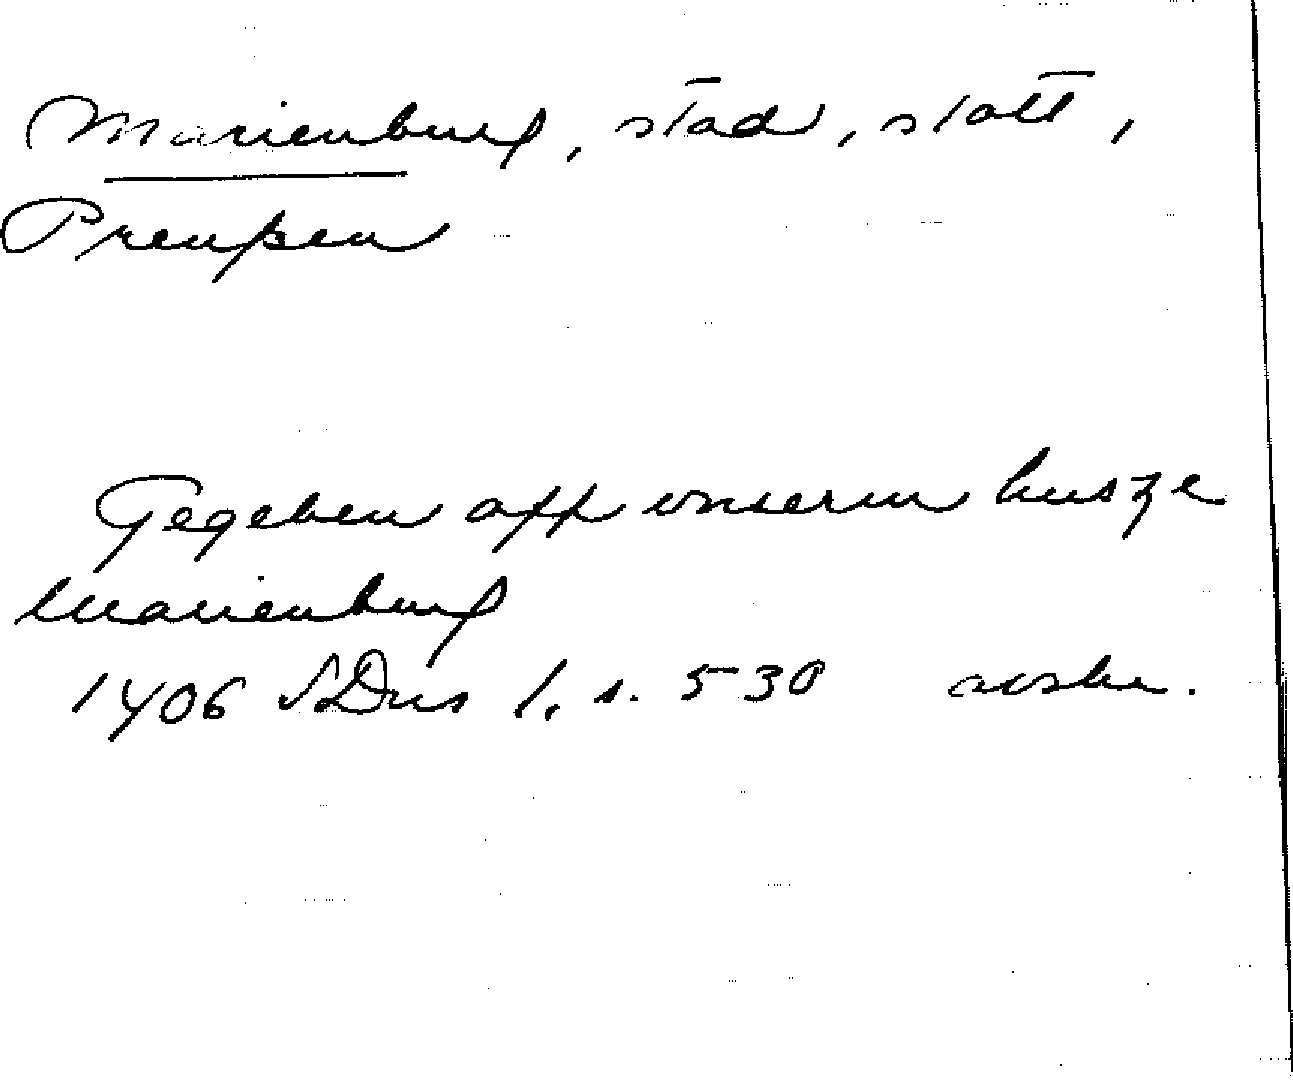 Marienburg, stad, slott,
Preußen
Gegeben off unserm husze
Marienburg
1406 SDns 1, s. 530 avskr.